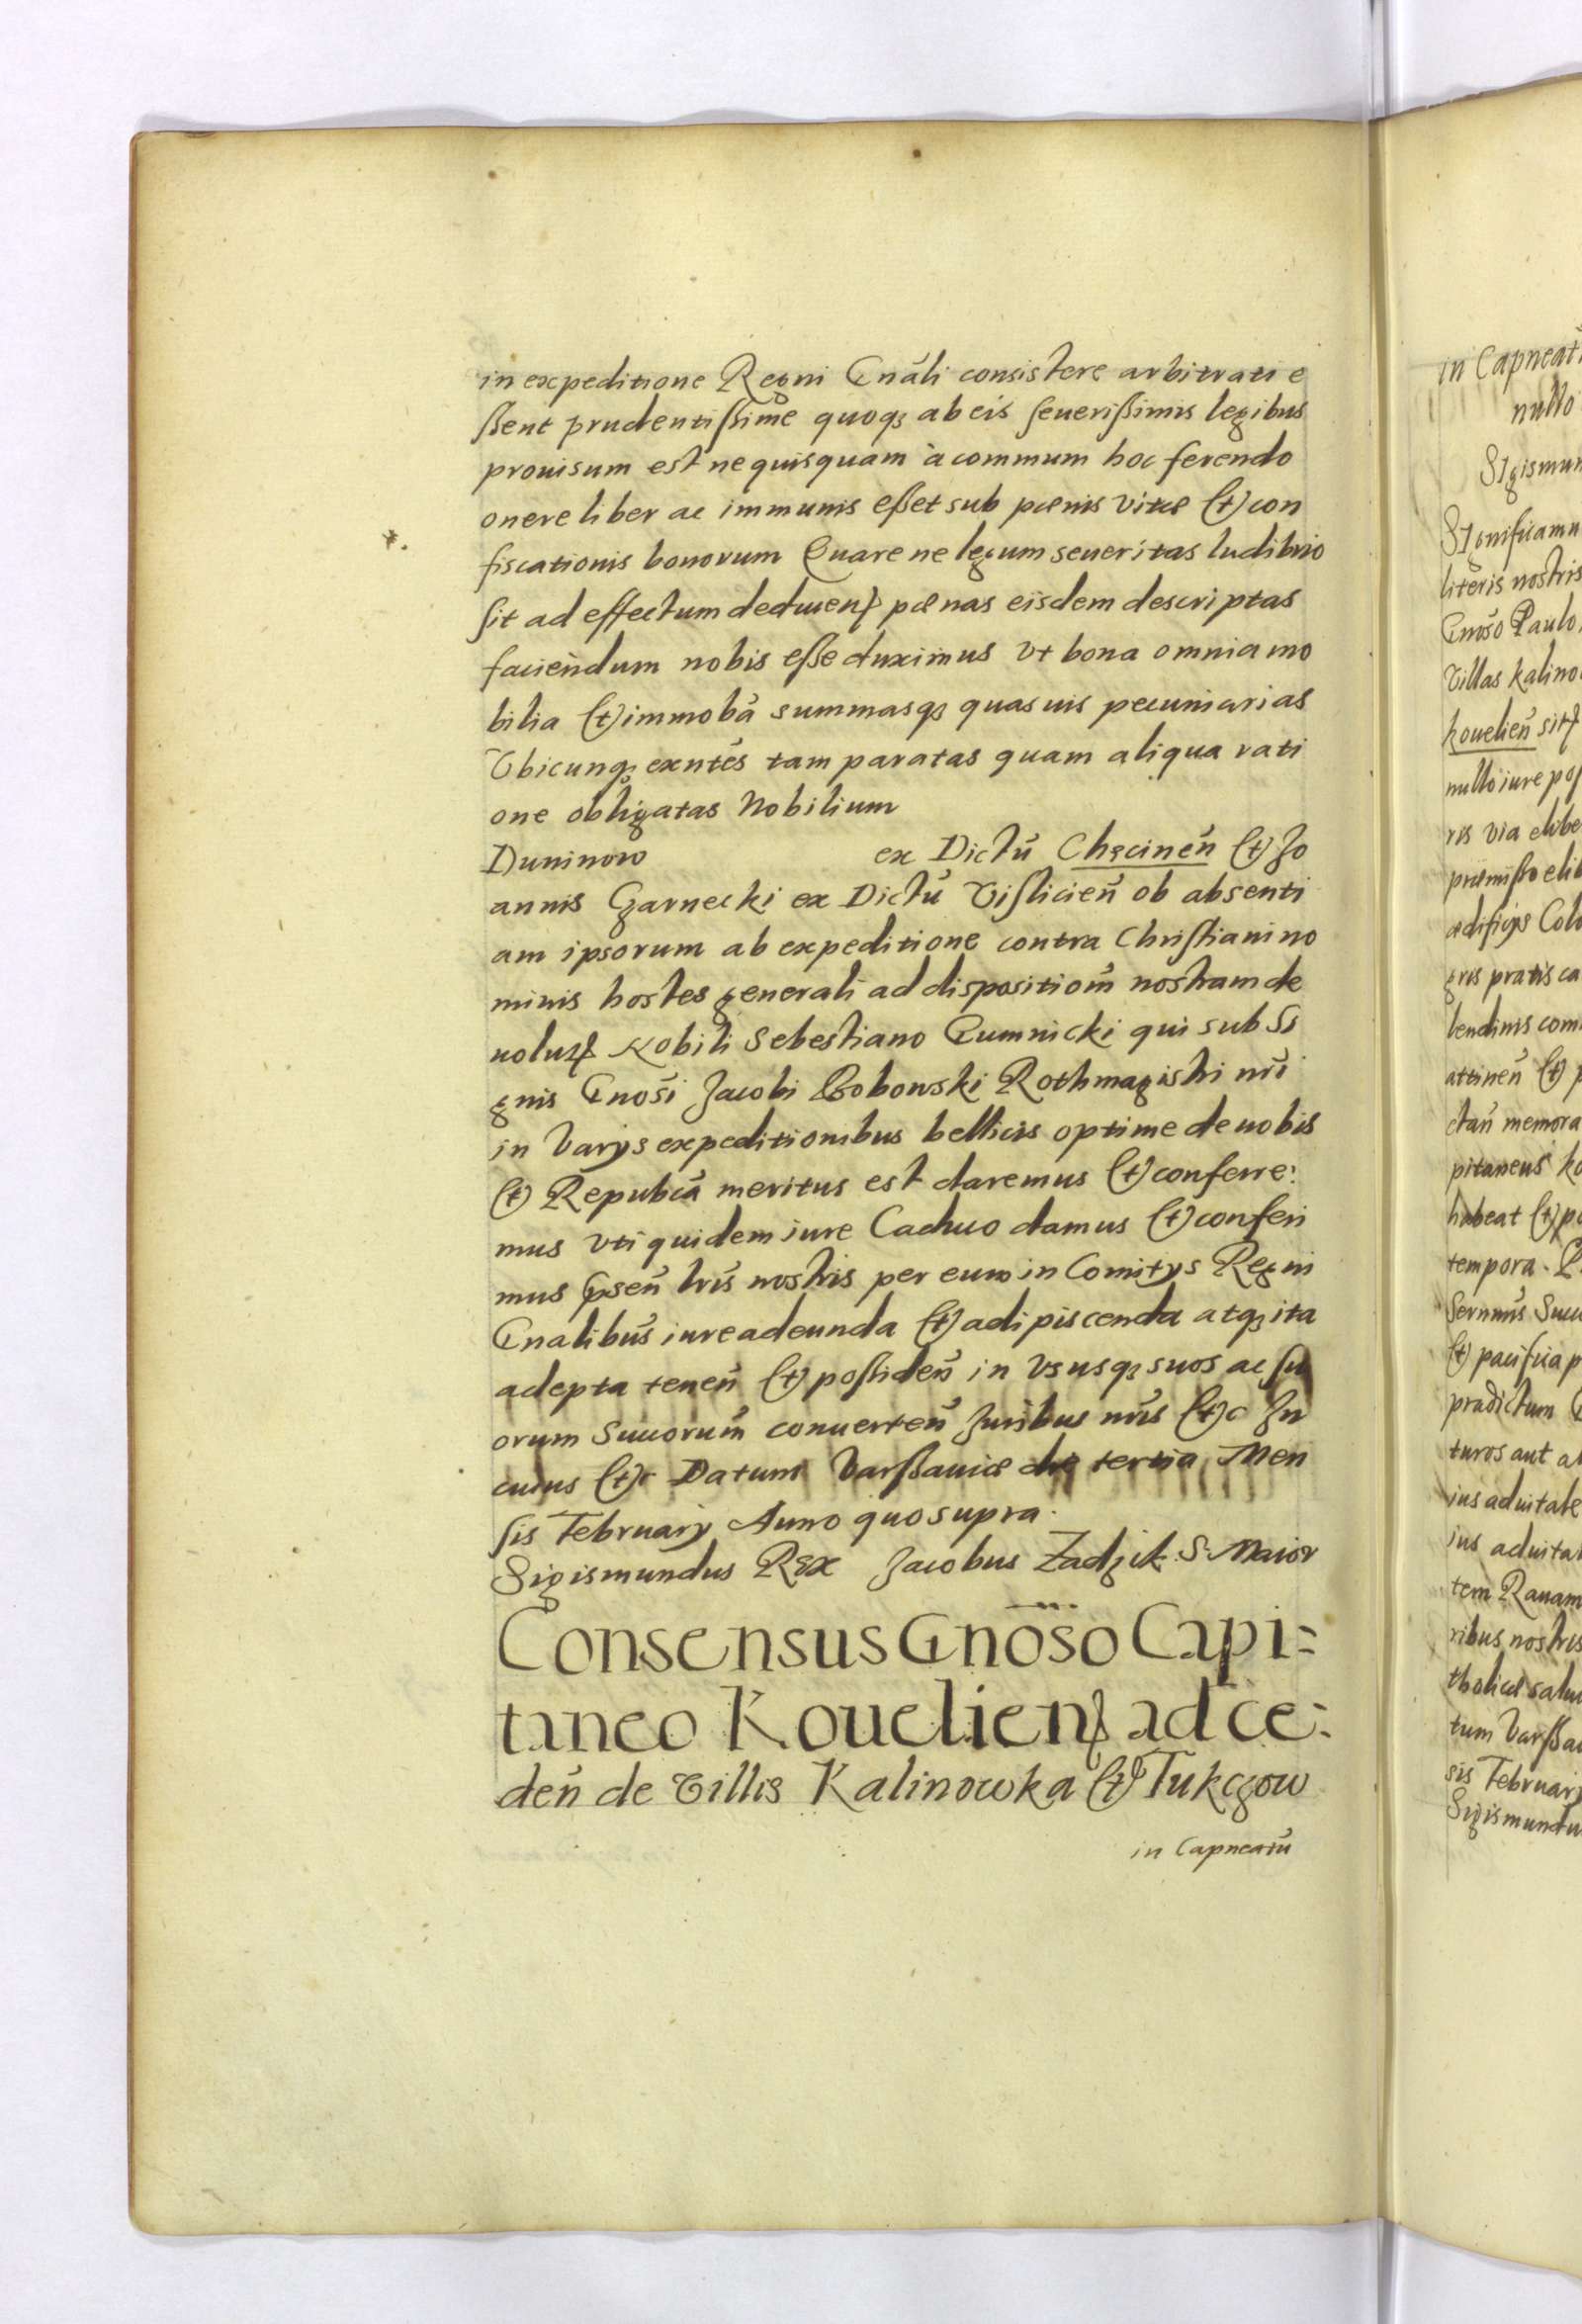 in expeditione Regni Gnãli consistere arbitrati e
ßent prudentißime quoqȝ ab eis seuerißimis legibus
prouisum est ne quisquam à commum hoc ferendo
onere liber ac immunis eßet sub pœnis vitæ (t) con
fiscationis bonorum Quare ne legum seueritas ludibrio
sit ad effectum deducenꝭ pœnas eisdem descriptas
faciendum nobis eße duximus vt bona omnia mo
bilia (t) immobã summasqȝ quasuis pecuniarias
Vbicunqȝ exntẽs tam paratas quam aliqua rati
one obligatas Nobilium
Duninow ex Dictũ Chęcineñ (t) Jo
annis Czarnecki ex Dictũ Visliciẽn ob absenti
am ipsorum ab expeditione contra Christiani no
minis hostes generali ad dispositiõm nostram de
uolutꝭ Nobili Sebestiano Gumnicki qui sub Si
gnis Gnõsi Jacobi Bobowski Rothmagistri nrĩ
in Varijs expeditionibus bellicis optime de nobis
(t) Repubcã meritus est daremus (t) conferre:
mus vti quidem iure Caduco damus (t) conferi
mus Pseñ lrĩs nostris per eum in Comitijs Regni
Gnalibũs iure adeunda (t) adipiscenda atqȝ ita
adepta teneñ (t) poßideñ in Vsusqȝ suos ac su
orum Succorũm conuerteñ Juribus nrĩs (t)c In
cuius (t)c Datum Varßauiæ die tertia Men
sis February Anno quo supra.
Sigismundus REX Jacobus Zadzik S. Maior
Consensus Gnõso Capi=
taneo Kouelienꝭ ad ce:
deñ de Villis Kalinowka (t) Tukczow
in Capneatũ
in Capneatũ
nullo
Sigismun
Significamu
literis nostris
Gnõso Paulo
Villas Kalino
koueliẽn sitꝭ
nullo iure pos
ris via elibe
præmisso elib
ædificijs Colo
gris pratis ca
lendinis com
attineñ (t) p
ctañ memora
pitaneus Ko
habeat (t) po
tempora. P
Sernmũs Succ
(t) pacifica p
prædictum G
turos aut al
ius aduitale
ius aduital
tem Rauam
ribus nostris
tholicæ salu
tum Varßau
sis February
Sigismundu